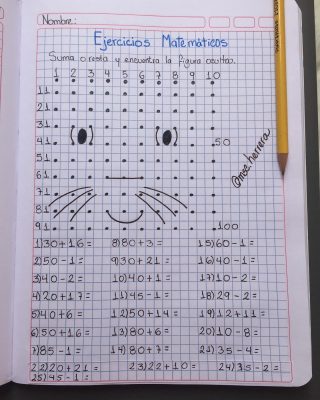 Nombre:
Ejercicios Matemáticos
Suma o resta y encuentra la figura oculta.
1 2 3 4 5 6 7 8 9 10
11
21
31
41 50
51
61
71
81
91 100
@mea.herrera
1)30+16= 8)80+3= 15)60-1=
2)50-1= 9)30+21= 16)40-1=
3)40-2= 10)40+1= 17)10-2=
4)20+17= 11)45-1= 18)29-2=
5)40+6= 12)50+14= 19)12+11=
6)50+16= 13)80+6= 20)10-8=
7)85-1= 14)80+7= 21)35-4=
22)20+21= 23)22+10= 24)35-2=
25)45-1=